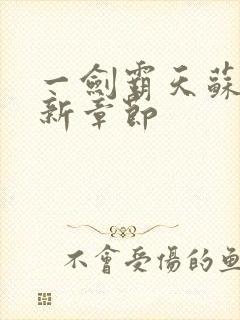 一劍霸天蘇
新章節
不會受傷的魚